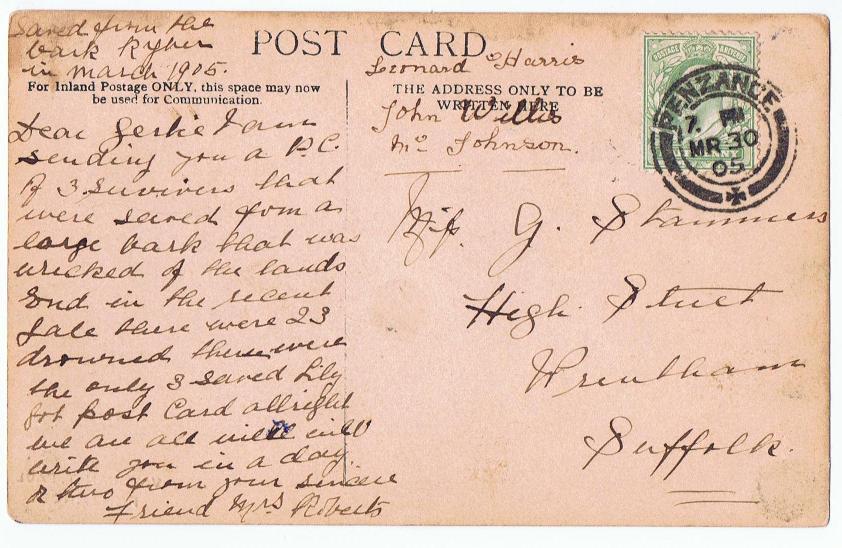 Saved from the
bark Kyber
in March 1905.
POST CARD.
For Inland Postage ONLY, this space may now
be used for Communication.
THE ADDRESS ONLY TO BE
WRITTEN HERE
Leonard Harris
John Willis
Mc Johnson.
POSTAGE
PENZANCE
7. PM
MR 30
05
Dear Gertie I am
sending you a P.C.
of 3 survivers that
were saved from a
large bark that was
wricked of the lands
End in the recent
Gale there were 23
drowned these were
the only 3 saved Lily
got post Card allright
we are all will will
write you in a day
or two from your sincere
friend Mrs Roberts
Miss. G. Stammers
High Street
Wrentham
Suffolk.